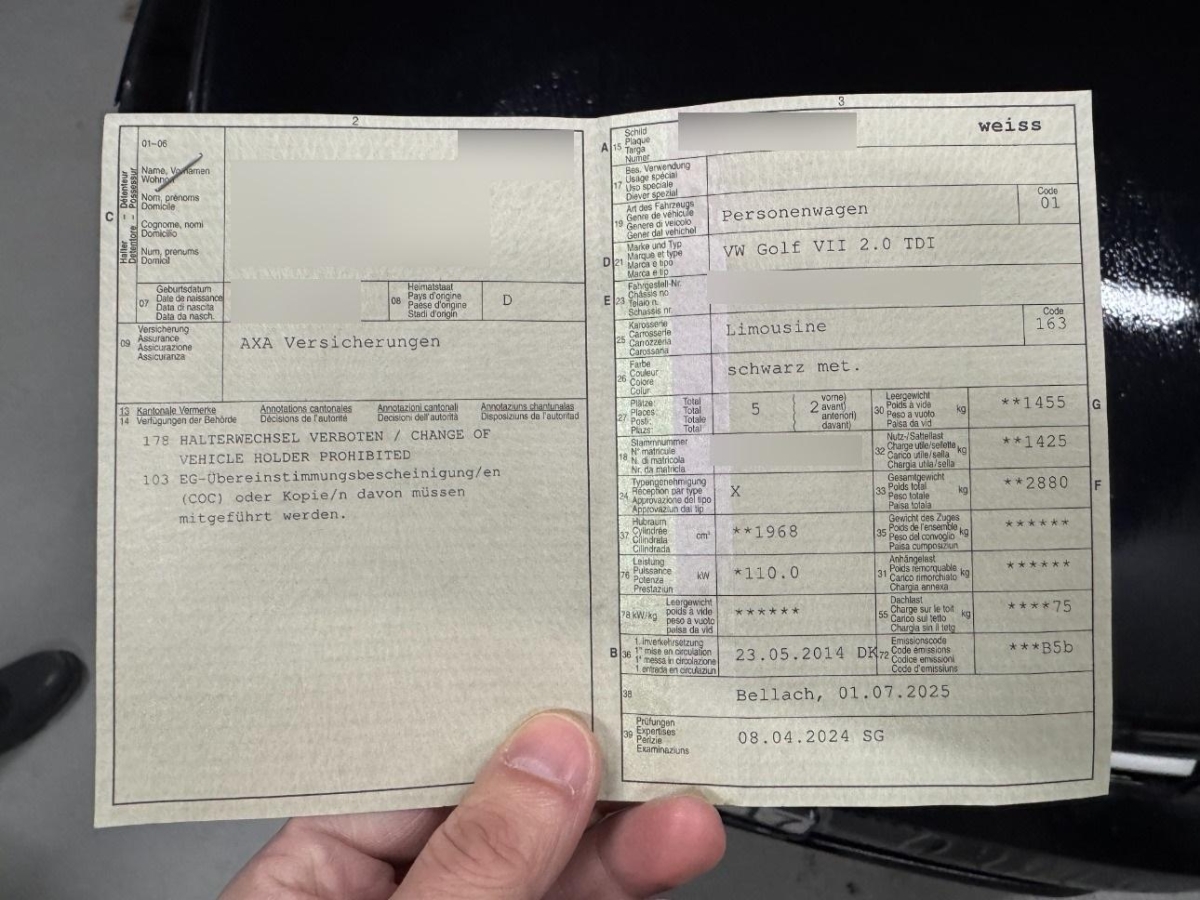 2
01-06
Haller - Détenteur
Detentore - Possessur
C
Name, Vornamen
Wohnort
Nom, prénoms
Domicile
Cognome, nomi
Domicilio
Num, prenums
Domicil
07
Geburtsdatum
Date de naissance
Data di nascita
Data da nasch.
08
Heimatstaat
Pays d'origine
Paese d'origine
Stadi d'origin
D
09
Versicherung
Assurance
Assicurazione
Assicuranza
AXA Versicherungen
13 Kantonale Vermerke Annotations cantonales Annotazioni cantonali Annotaziuns chantunalas
14 Verfügungen der Behörde Décisions de l'autorité Decisioni dell'autorità Disposiziuns da l'autoritad
178 HALTERWECHSEL VERBOTEN / CHANGE OF
VEHICLE HOLDER PROHIBITED
103 EG-Übereinstimmungsbescheinigung/en
(COC) oder Kopie/n davon müssen
mitgeführt werden.
3
A
15
Schild
Plaque
Targa
Numer
weiss
17
Bes. Verwendung
Usage spécial
Uso speciale
Diever spezial
19
Art des Fahrzeugs
Genre de véhicule
Genere di veicolo
Gener dal vehichel
Personenwagen
Code
01
D
21
Marke und Typ
Marque et type
Marca e tipo
Marca e tip
VW Golf VII 2.0 TDI
E
23
Fahrgestell-Nr.
Châssis no
Telaio n.
Schassis nr.
25
Karosserie
Carrosserie
Carrozzeria
Carossaria
Limousine
Code
163
26
Farbe
Couleur
Colore
Colur
schwarz met.
27
Plätze: Total
Places: Total
Posti: Totale
Plazs: Total
5
2
vorne)
avant)
anteriori)
davant)
30
Leergewicht
Poids à vide
Peso a vuoto
Paisa da vid
kg
**1455
G
18
Stammnummer
N° matricule
N. di matricola
Nr. da matricla
32
Nutz-/Sattellast
Charge utile/sellette
Carico utile/sella
Chargia utila/sella
kg
**1425
24
Typengenehmigung
Réception par type
Approvazione del tipo
Approvaziun dal tip
X
33
Gesamtgewicht
Poids total
Peso totale
Paisa totala
kg
**2880
F
37
Hubraum
Cylindrée
Cilindrata
Cilindrada
cm³
**1968
35
Gewicht des Zuges
Poids de l'ensemble
Peso del convoglio
Paisa cumposiziun
kg
******
76
Leistung
Puissance
Potenza
Prestaziun
kW
*110.0
31
Anhängelast
Poids remorquable
Carico rimorchiato
Chargia annexa
kg
******
78 kW/kg
Leergewicht
poids à vide
peso a vuoto
paisa da vid
******
55
Dachlast
Charge sur le toit
Carico sul tetto
Chargia sin il tetg
kg
****75
B
36
1. Inverkehrsetzung
1re mise en circulation
1a messa in circolazione
1. entrada en circulaziun
23.05.2014 DK
72
Emissionscode
Code émissions
Codice emissioni
Code d'emissiuns
***B5b
38
Bellach, 01.07.2025
39
Prüfungen
Expertises
Perizie
Examinaziuns
08.04.2024 SG